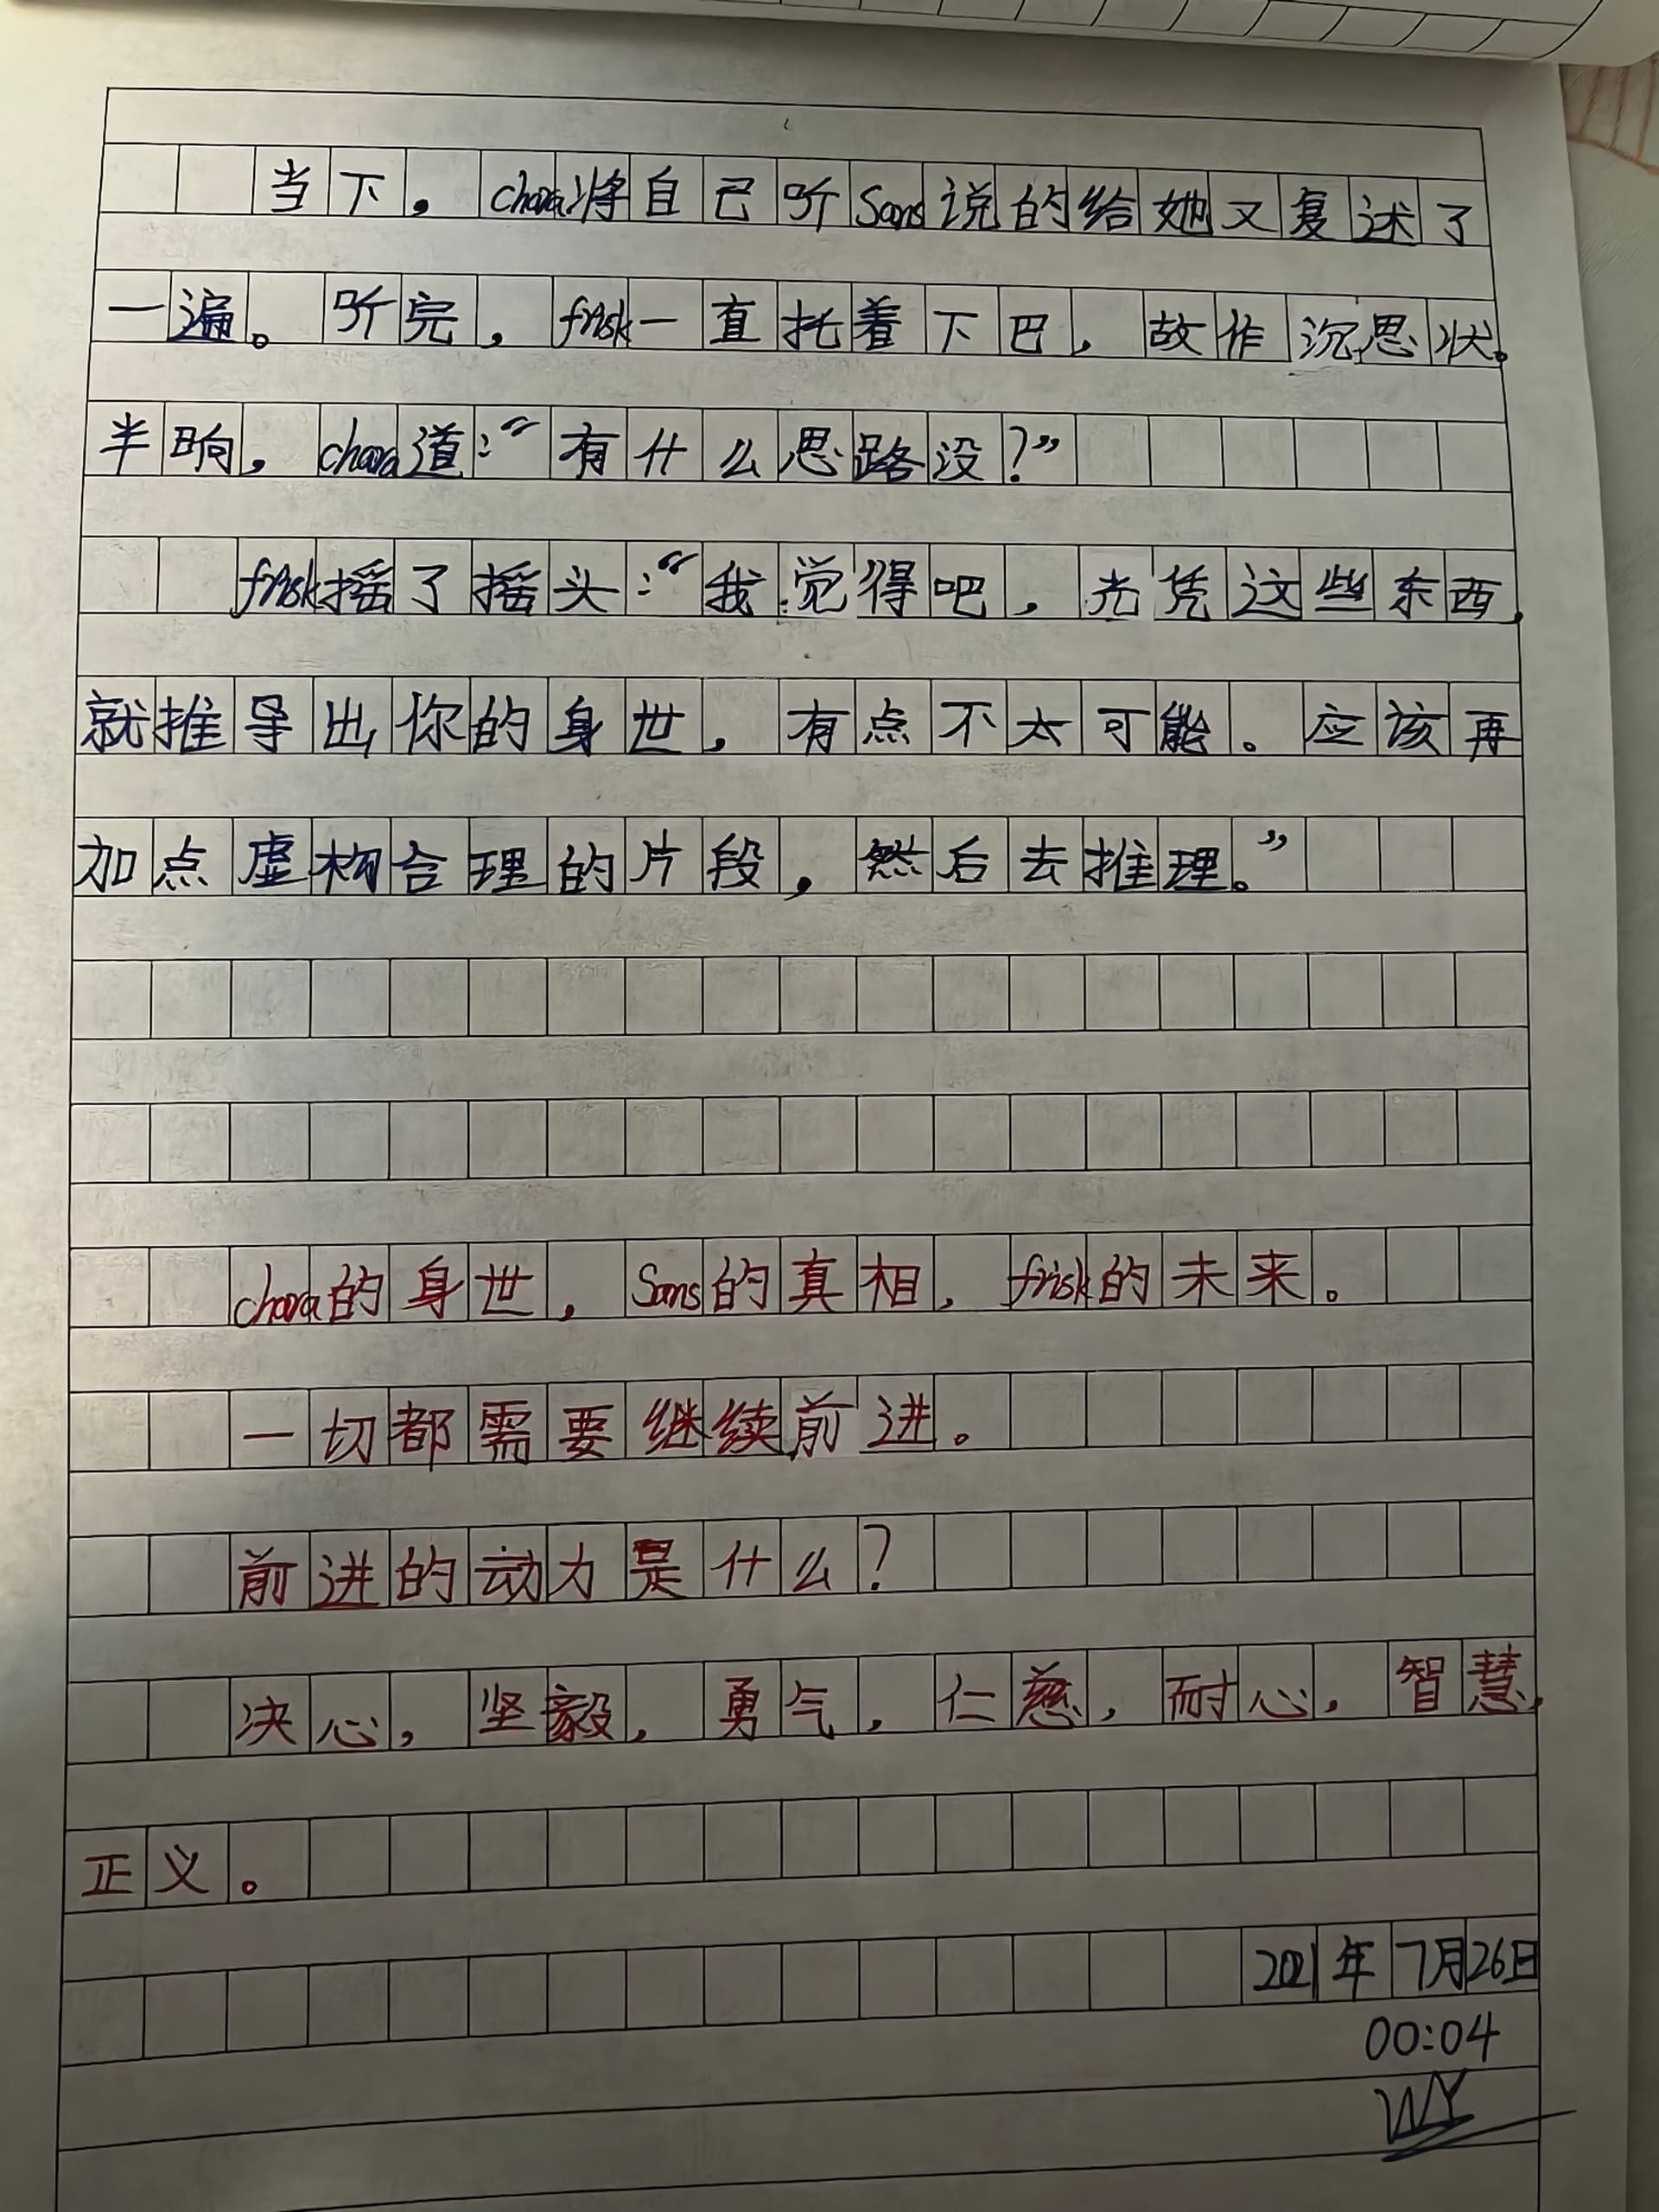 当下，chara将自己听Sans说的给她又复述了
一遍。听完，frisk一直托着下巴，故作沉思状。
半晌，chara道：“有什么思路没？”
frisk摇了摇头：“我觉得吧，光凭这些东西，
就推导出你的身世，有点不太可能。应该再
加点虚构合理的片段，然后去推理。”
chara的身世，Sans的真相，frisk的未来。
一切都需要继续前进。
前进的动力是什么？
决心，坚毅，勇气，仁慈，耐心，智慧，
正义。
2021年7月26日
00:04
WY